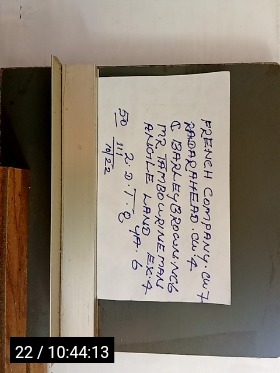 FRENCH COMPANY. CW 7
RADARAHEAD. CW. 4
C BARLEYBROWN. NC6
MR. TAMBOURINEMAN
ANGLE LAND EX. 4
2. D. T. 8, YA. 6
50
111
10/22
22 / 10:44:13